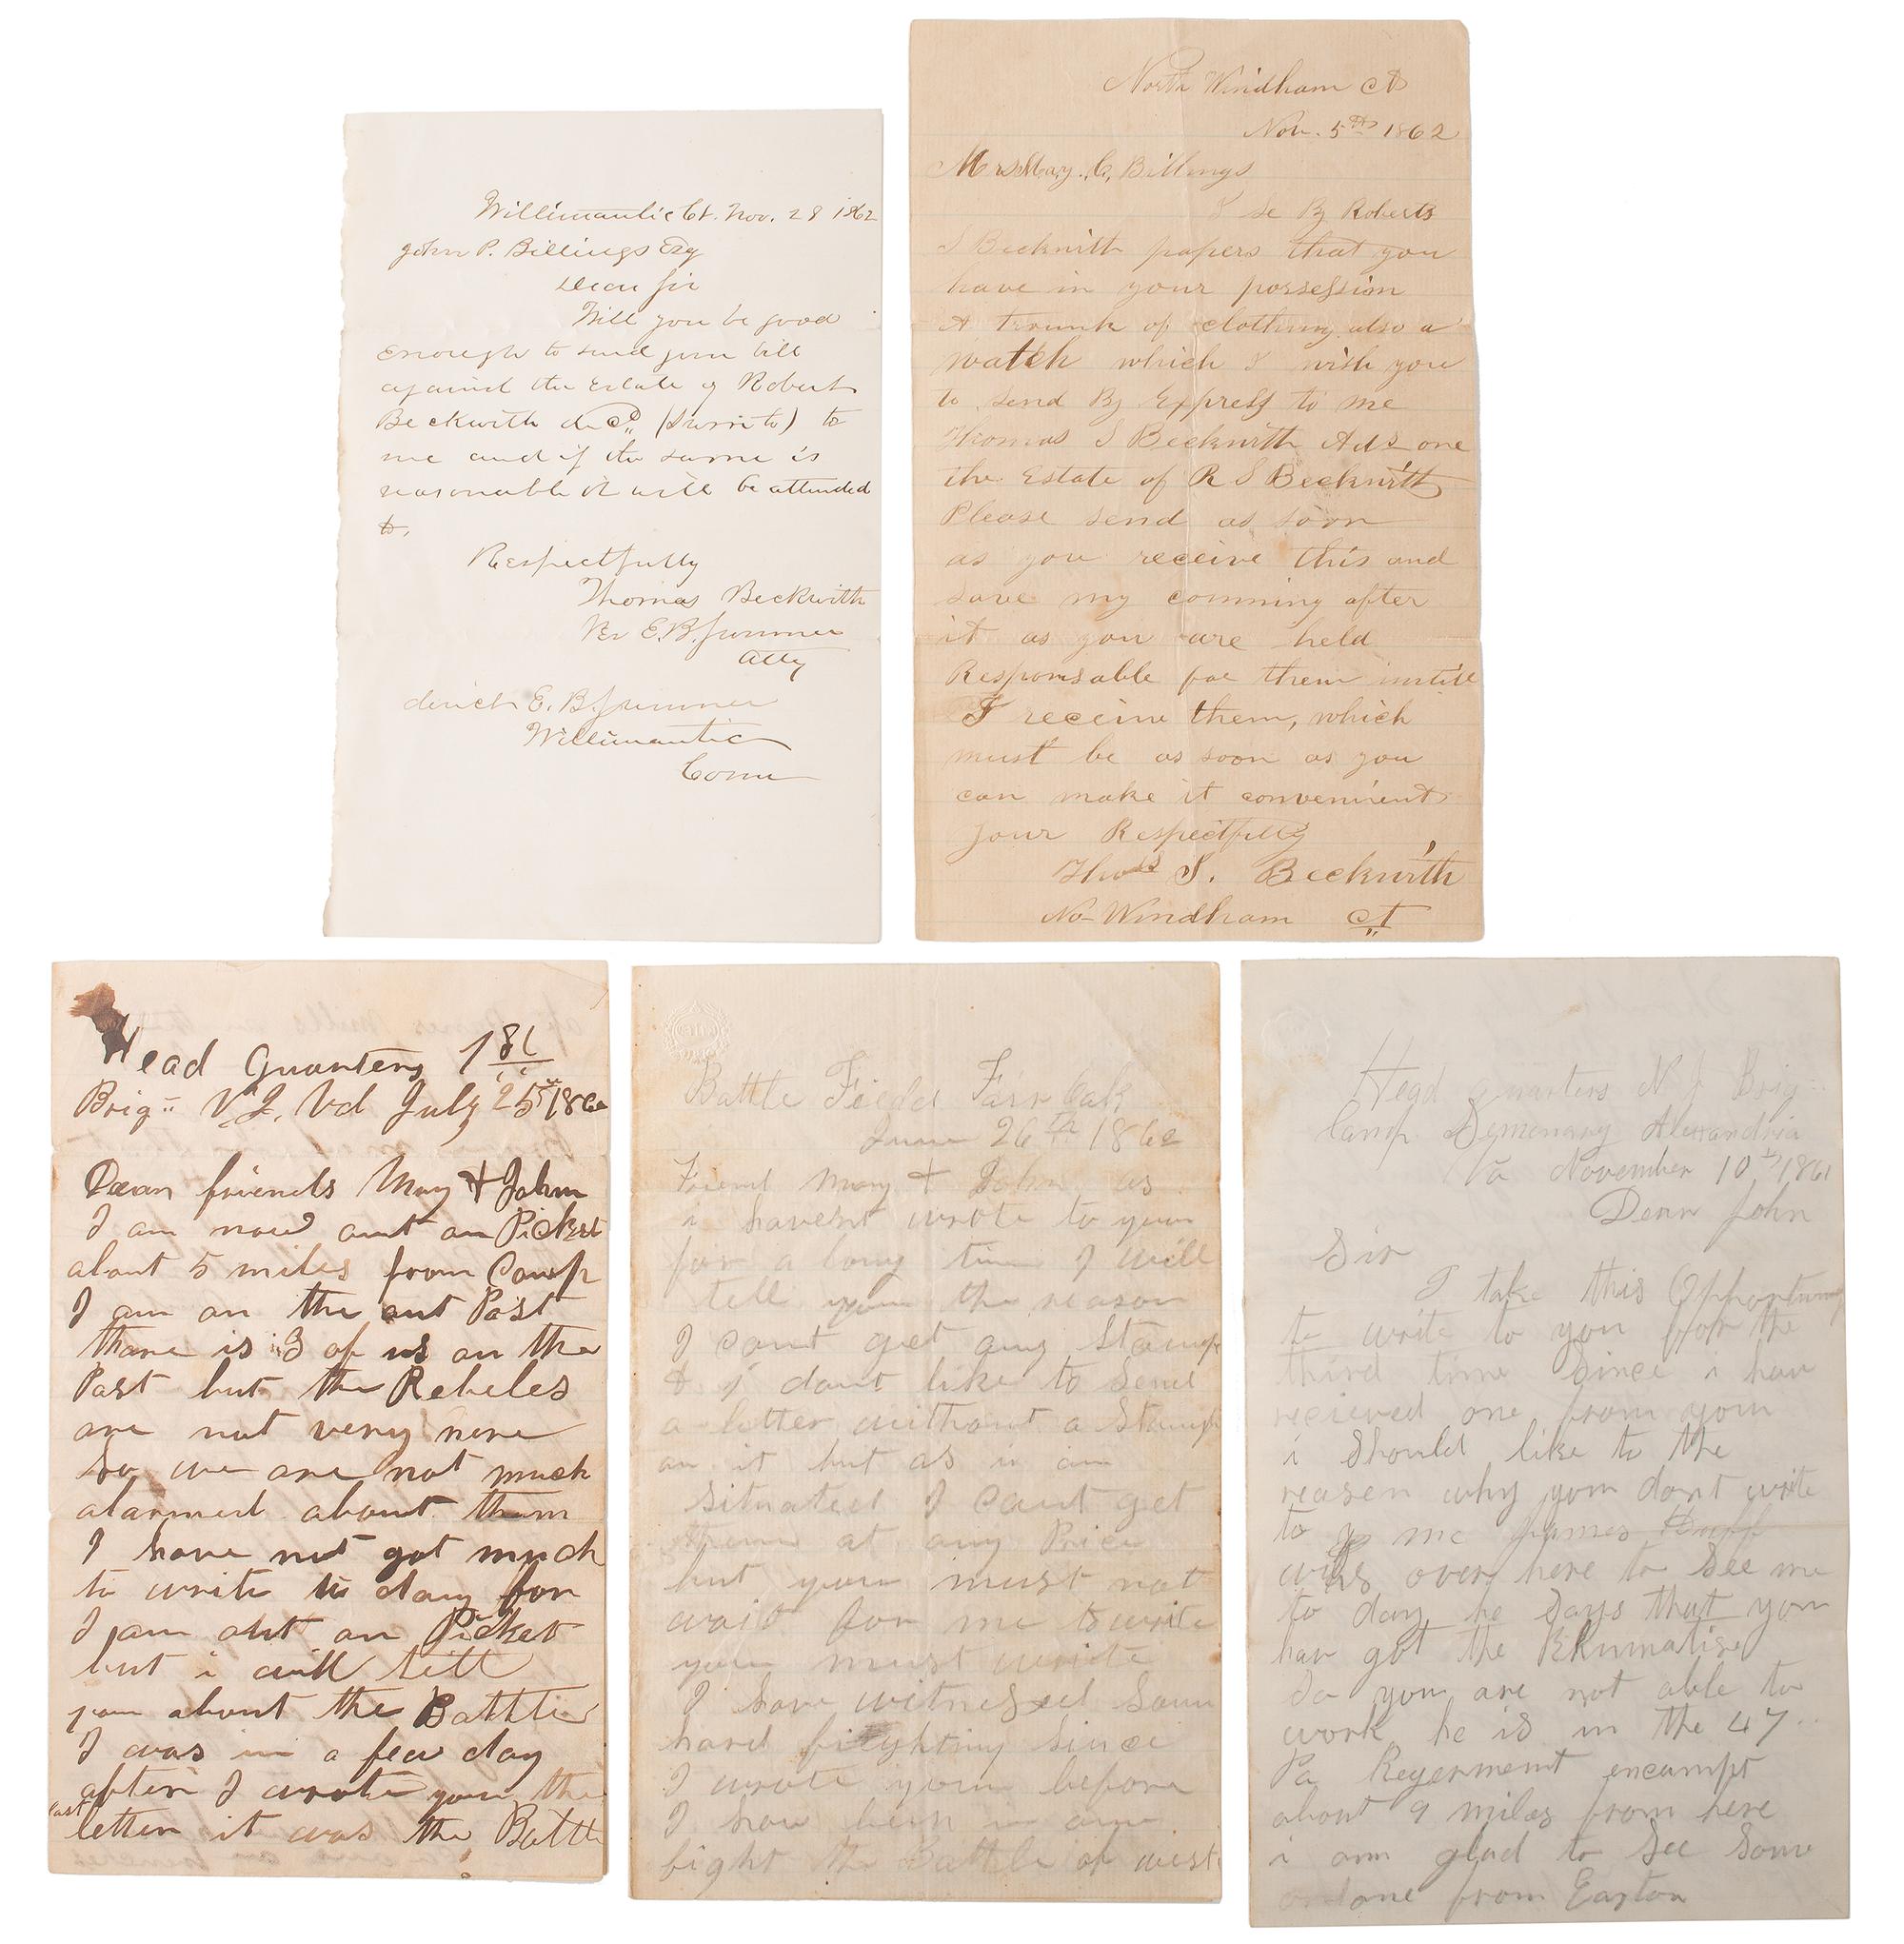 Willimantic Ct. Nov. 28 1862
John P. Billings Esq
Dear Sir
Will you be good
enough to send your bill
against the Estate of Robert
Beckwith decd. () to
me and if the same is
reasonable it will be attended
to.
Respectfully
Thomas Beckwith
Per E.B. Sumner
Atty
direct E. B. Sumner
Willimantic
Conn
North Windham Ct
Nov. 5th 1862
Mrs May. C, Billings
I Se By Roberts
S Beckwith papers that you
have in your possession
A trunk of clothing also a
watch which I wish you
to send By Express to me
Thomas S Beckwith Ads one
the Estate of R S Beckwith
Please send as soon
as you receive this and
save my comming after
it as you are held
Responsable for them untill
I receive them, which
must be as soon as you
can make it convenient
your Respectfully
Thos S. Beckwith
No Windham ct
Head Quarters 1st
Brig N.J. Vol July 25th 1862
Dear friends Mary & John
I am now out on Picket
about 5 miles from Camp
I am on the out Post
thare is 3 of us on the
Post but the Rebeles
are not very nere
So we are not much
alarmed about them
I have not got much
to write to day for
I am out on Picket
but i will tell
you about the Battle
I was in a few day
after I wrote you the
last letter it was the Battle
Battle Field Fair Oak
June 26th 1862
Friend Mary & John as
i havent wrote to you
for a long time I will
tell you the reason
I cant get any Stamps
& i dont like to Send
a letter without a Stamp
on it but as i am
Situated I cant get
them at any Price
but you must not
wait for me to write
you must write
I have witnessed Some
hard fighting Since
I wrote you before
I have been in one
fight the Battle of west
Head quarters N J Brig
Camp Semenary Alexandria
Va November 10th 1861
Dear John
Sir
I take this Opportunity
to write to you for the
third time Since i have
recieved one from you
i Should like to the
reason why you dont write
to me James Huff
was over here to See me
to day he Says that you
hav got the Rhumatise
So you are not able to
work he is in the 47
Pa Regerment encampt
about 9 miles from here
i am glad to See Some
one from Easton